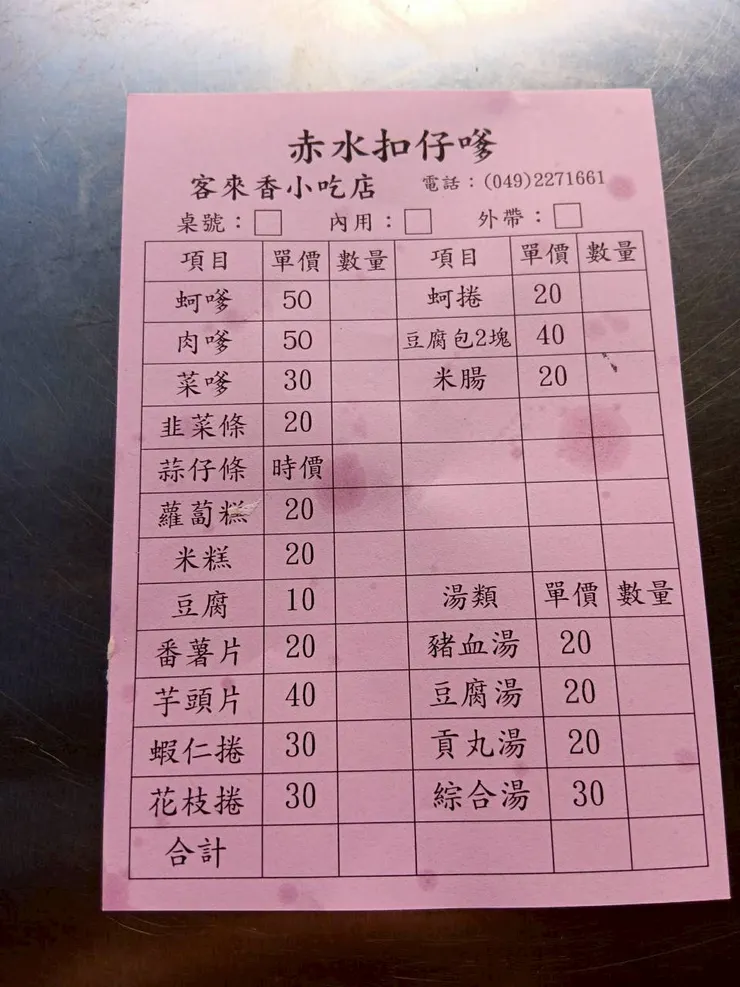 赤水扣仔嗲
客來香小吃店 電話：(049)2271661
桌號：□ 內用：□ 外帶：□
項目 單價 數量 項目 單價 數量
蚵嗲 50 蚵捲 20
肉嗲 50 豆腐包2塊 40
菜嗲 30 米腸 20
韭菜條 20
蒜仔條 時價
蘿蔔糕 20
米糕 20
豆腐 10 湯類 單價 數量
番薯片 20 豬血湯 20
芋頭片 40 豆腐湯 20
蝦仁捲 30 貢丸湯 20
花枝捲 30 綜合湯 30
合計